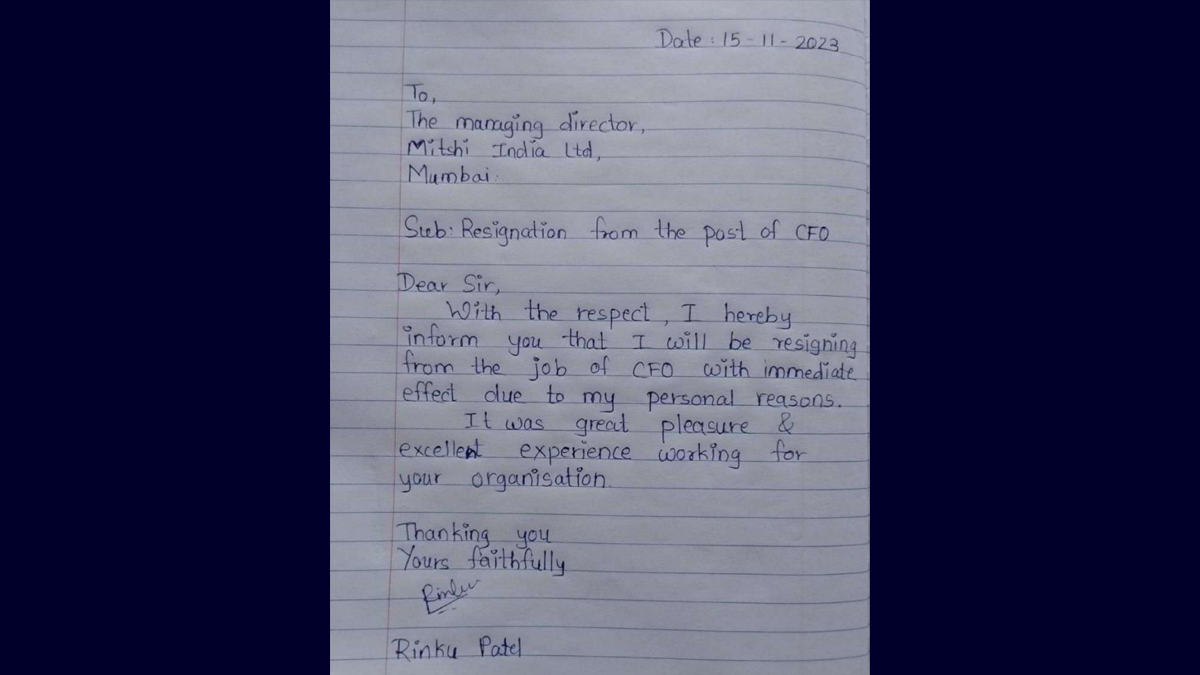 Date : 15-11-2023
To,
The managing director,
Mitshi India Ltd,
Mumbai.
Sub: Resignation from the post of CFO
Dear Sir,
With the respect, I hereby
inform you that I will be resigning
from the job of CFO with immediate
effect due to my personal reasons.
It was great pleasure &
excellent experience working for
your organisation
Thanking you
Yours faithfully
Rinku
Rinku Patel